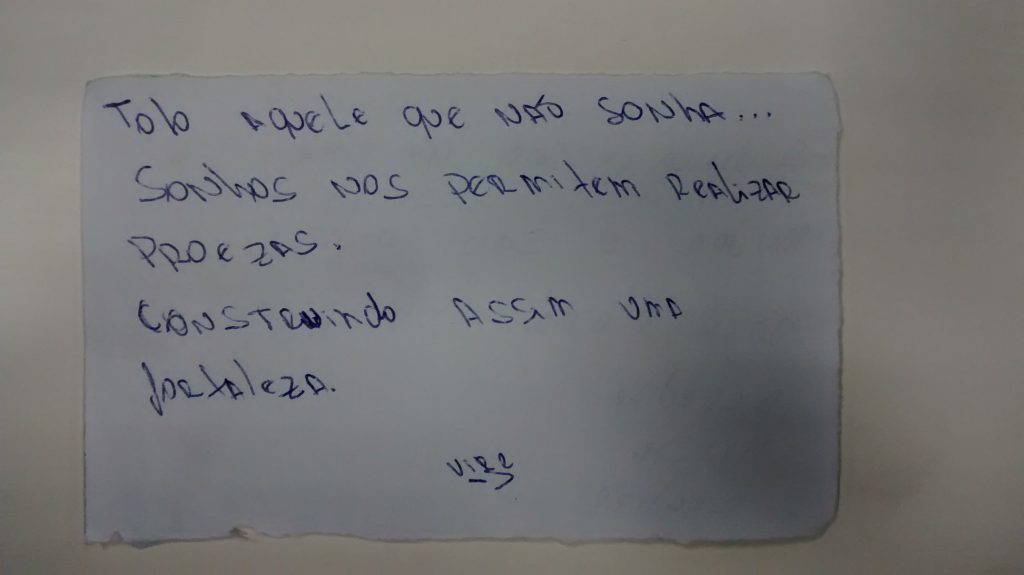 Tolo aquele que não sonha...
Sonhos nos permitem realizar
proezas.
Construindo assim uma
fortaleza.